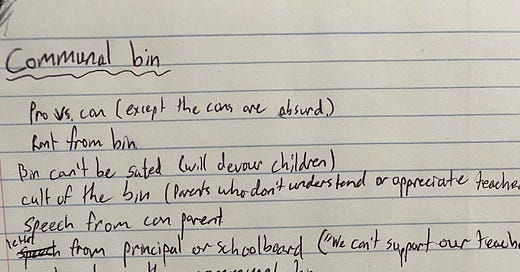 Communal bin
Pro vs. con (except the cons are absurd)
Rant from bin
Bin can't be sated (will devour children)
cult of the bin (Parents who don't understand or appreciate teache
Speech from con parent
letter from principal or schoolboard ("We can't support our teache
communal